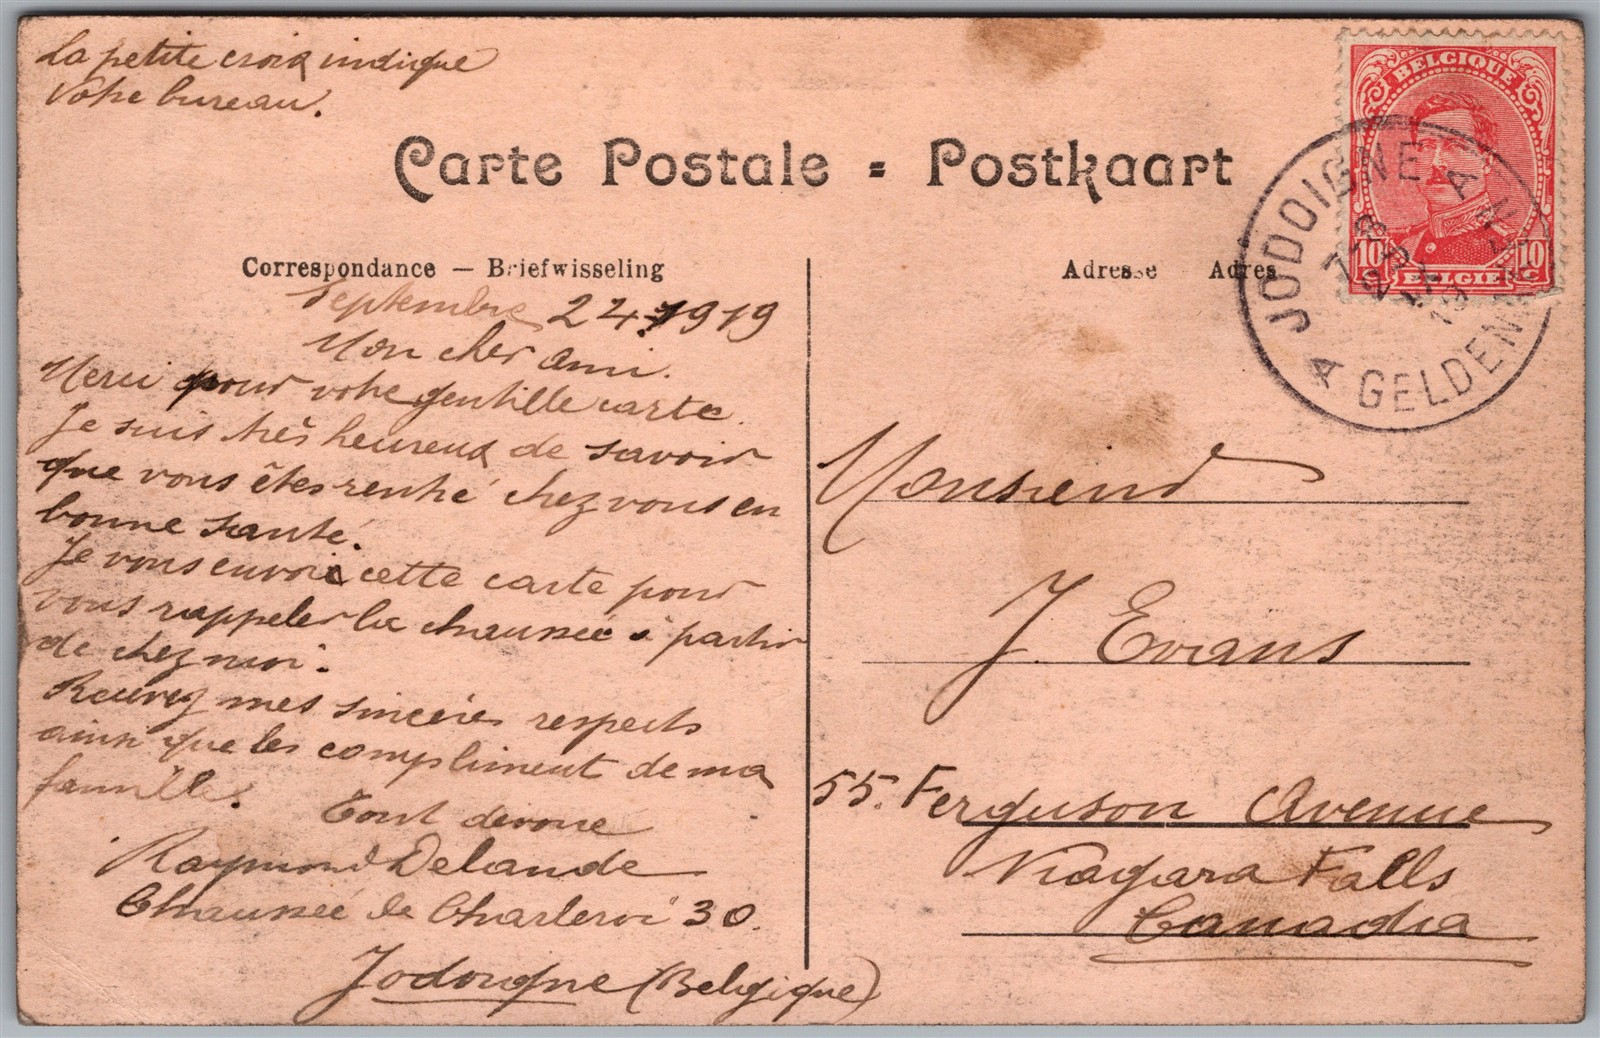 La petite croix indique
votre bureau.
Carte Postale = Postkaart
BELGIQUE
10 10
BELGIË
JODOIGNE A
A GELDENA
Correspondance — Briefwisseling
Adresse Adres
Septembre 24 1919
Mon cher Ami.
Merci pour votre gentille carte.
Je suis très heureux de savoir
que vous êtes rentré chez vous en
bonne santé.
Je vous envoie cette carte pour
vous rappeler la chaussée à partir
de chez moi.
Recevez mes sincères respects
ainsi que les compliment de ma
famille.
Tout dévoué
Raymond Delande
Chaussée de Charleroi 30.
Jodoigne (Belgique)
Monsieur
J. Evans
55. Ferguson Avenue
Niagara Falls
Canada